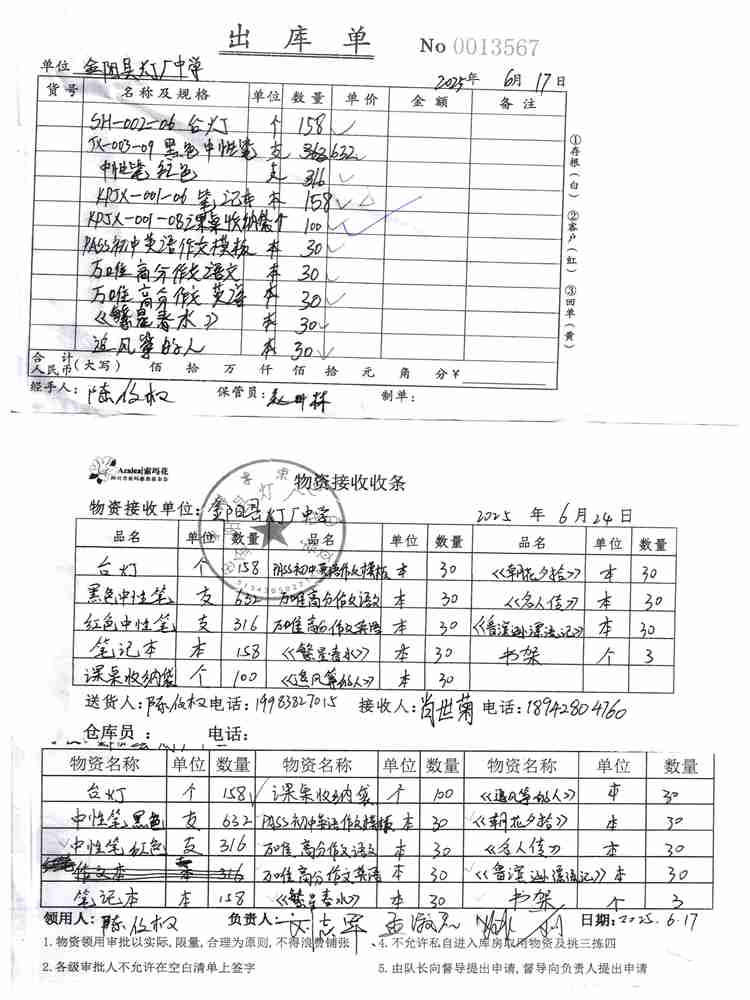 出 库 单
No 0013567
单位 金阳县灯厂中学 2025年 6月 17日
货号 名称及规格 单位 数量 单价 金额 备注
SH-002-06 台灯 个 158
JX-003-09 黑色中性笔 支 632
中性笔 红色 支 316
KPJX-001-06 笔记本 本 158
KPJX-001-08 课桌收纳袋 个 100
PASS初中英语作文模板 本 30
万唯高分作文 语文 本 30
万唯高分作文 英语 本 30
《繁星春水》 本 30
追风筝的人 本 30
合计人民币(大写) 佰 拾 万 仟 佰 拾 元 角 分¥
经手人: 陈伯权 保管员: 制单:
①存根(白) ②客户(红) ③回单(黄)
Azalea|索玛花
物资接收收条
物资接收单位: 金阳县灯厂中学 2025 年 6 月 24 日
品名 单位 数量 品名 单位 数量 品名 单位 数量
台灯 个 158 PASS初中英语作文模板 本 30 《朝花夕拾》 本 30
黑色中性笔 支 632 万唯高分作文语文 本 30 《名人传》 本 30
红色中性笔 支 316 万唯高分作文英语 本 30 《鲁滨逊漂流记》 本 30
笔记本 本 158 《繁星春水》 本 30 书架 个 3
课桌收纳袋 个 100 《追风筝的人》 本 30
送货人: 陈伯权 电话: 19983827015 接收人: 肖世菊 电话: 18942804760
仓库员: 电话:
物资名称 单位 数量 物资名称 单位 数量 物资名称 单位 数量
台灯 个 158 课桌收纳袋 个 100 《追风筝的人》 本 30
中性笔 黑色 支 632 PASS初中英语作文模板 本 30 《朝花夕拾》 本 30
中性笔 红色 支 316 万唯高分作文语文 本 30 《名人传》 本 30
作文本 本 316 万唯高分作文英语 本 30 《鲁滨逊漂流记》 本 30
笔记本 本 158 《繁星春水》 本 30 书架 个 3
领用人: 陈伯权 负责人: 日期: 2025.6.17
1.物资领用审批以实际,限量,合理为原则,不得浪费铺张 4.不允许私自进入库房取用物资及挑三拣四
2.各级审批人不允许在空白清单上签字 5.由队长向督导提出申请,督导向负责人提出申请